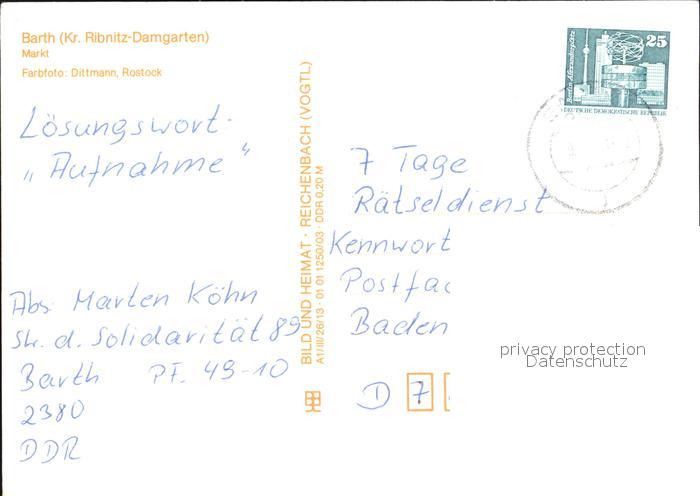 Barth (Kr. Ribnitz-Damgarten)
Markt
Farbfoto: Dittmann, Rostock
Lösungswort:
„Aufnahme"
Abs. Marten Köhn
Str. d. Solidarität 89
Barth PF. 49-10
2380
DDR
BILD UND HEIMAT · REICHENBACH (VOGTL)
A1/III/26/13 · 01 01 1250/03 · DDR 0,20 M
25
Berlin, Alexanderplatz
DEUTSCHE DEMOKRATISCHE REPUBLIK
7 Tage
Rätseldienst
Kennwort
Postfac
Baden
D 7
privacy protection
Datenschutz